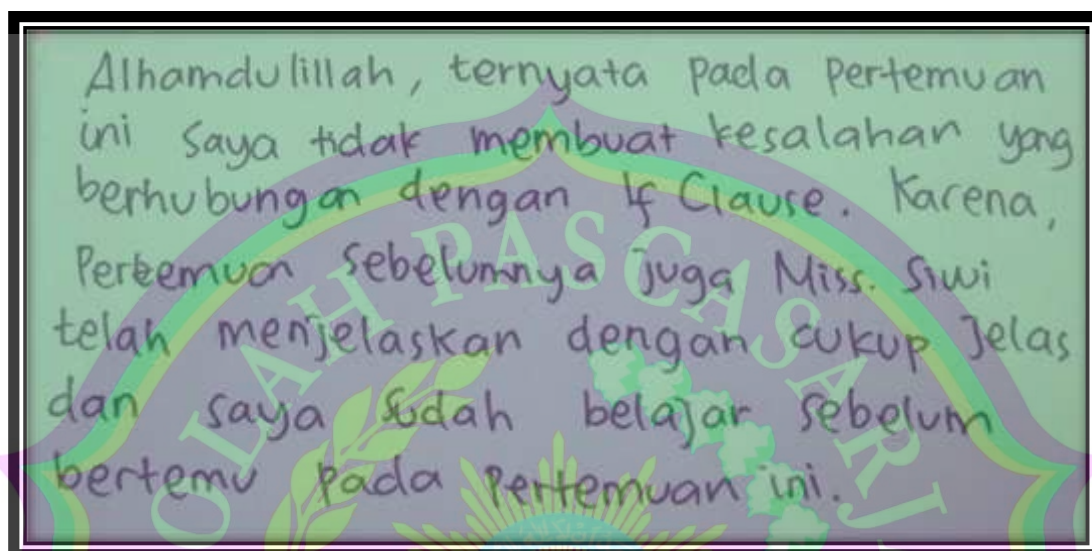 Alhamdulillah, ternyata pada pertemuan
ini saya tidak membuat kesalahan yang
berhubungan dengan If Clause. Karena,
Pertemuan sebelumnya juga Miss. Siwi
telah menjelaskan dengan cukup Jelas
dan saya sudah belajar sebelum
bertemu pada Pertemuan ini.
OLAH PASCASARJ